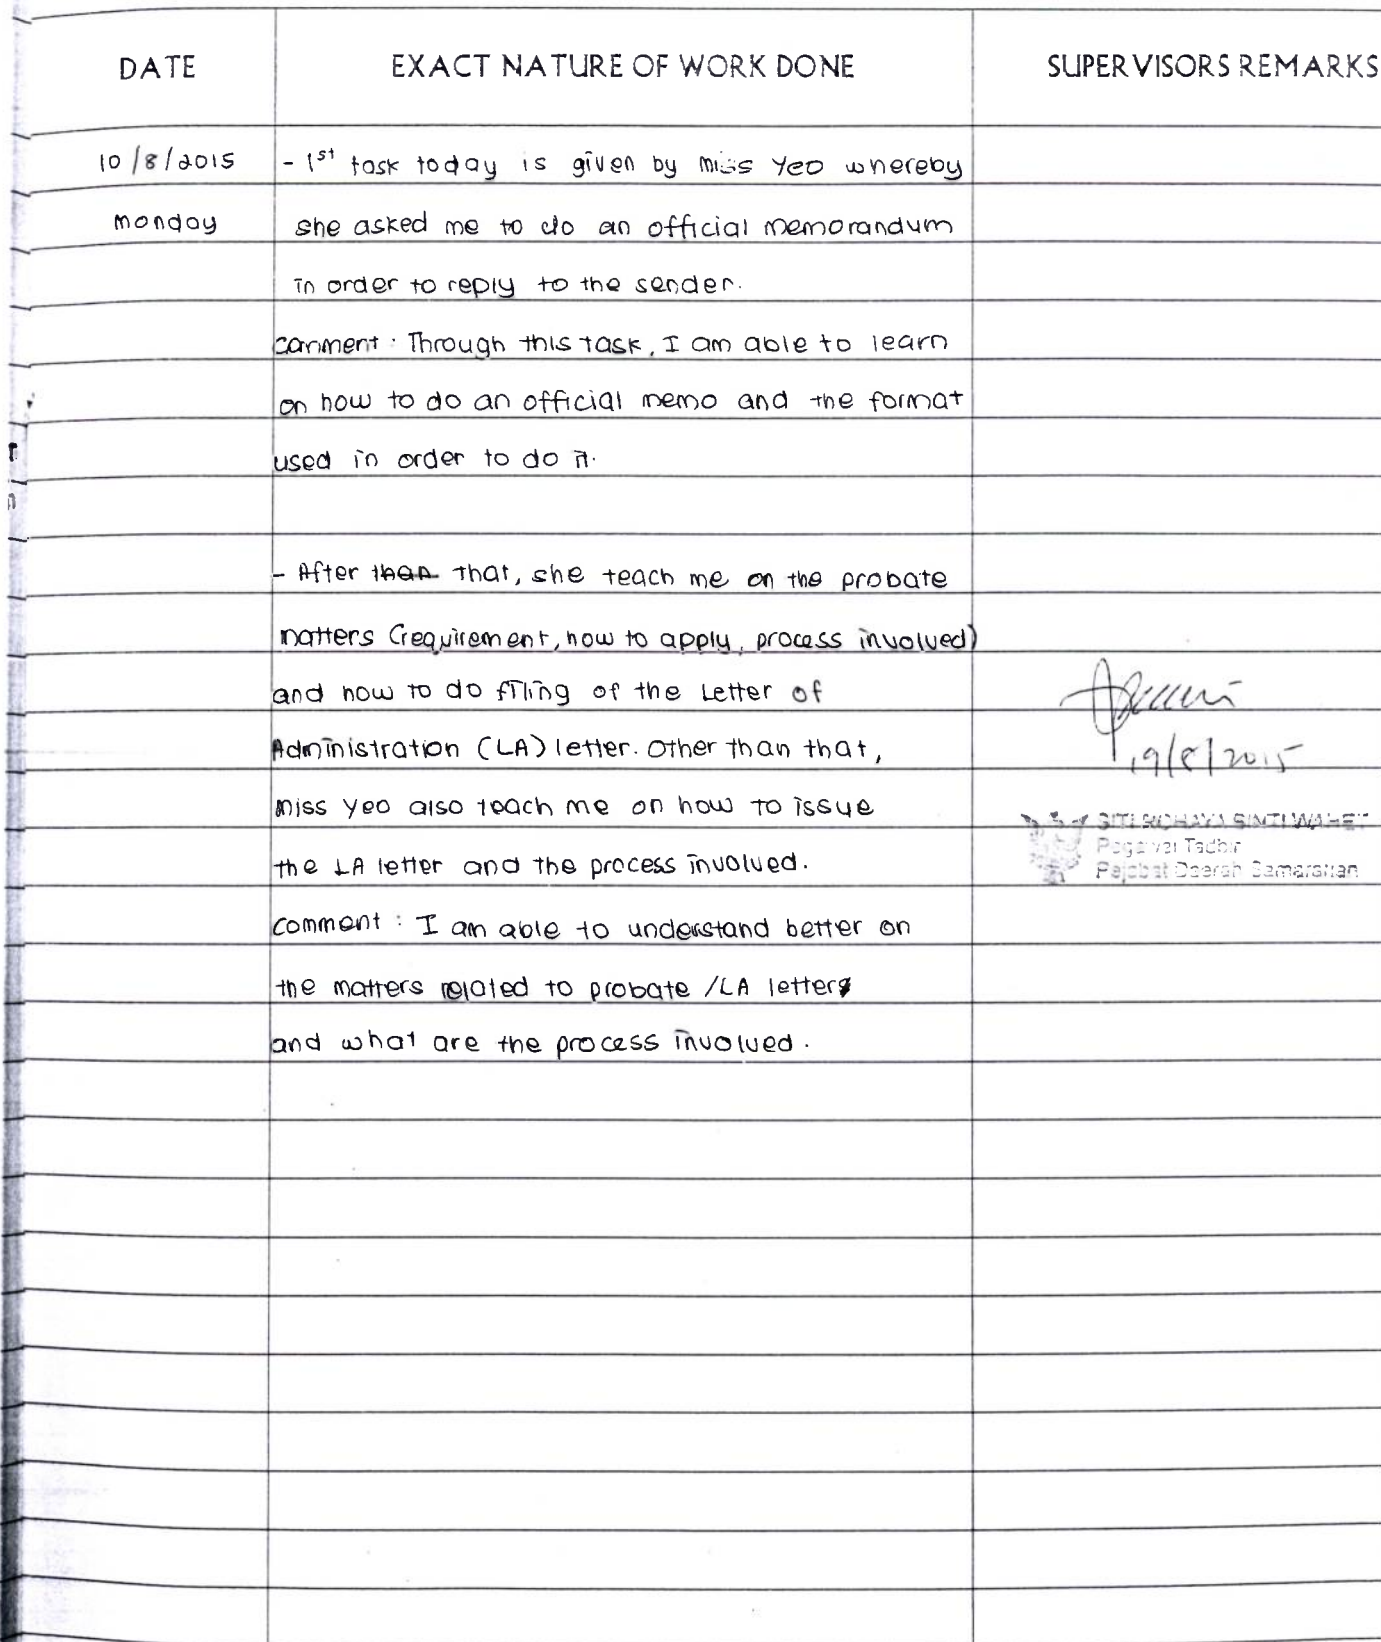 DATE EXACT NATURE OF WORK DONE SUPERVISORS REMARKS
10/8/2015 - 1st task today is given by miss Yeo whereby
monday she asked me to do an official memorandum
in order to reply to the sender.
comment : Through this task, I am able to learn
on how to do an official memo and the format
used in order to do it.
- After than that, she teach me on the probate
matters (requirement, how to apply, process involved)
and how to do filing of the Letter of
Administration (LA) letter. Other than that,
miss Yeo also teach me on how to issue
the LA letter and the process involved.
comment : I am able to understand better on
the matters related to probate /LA letter
and what are the process involved.
19/8/2015
SITI ROHAYA BINTI
Pegawai Tadbir
Pejabat Daerah Samarahan